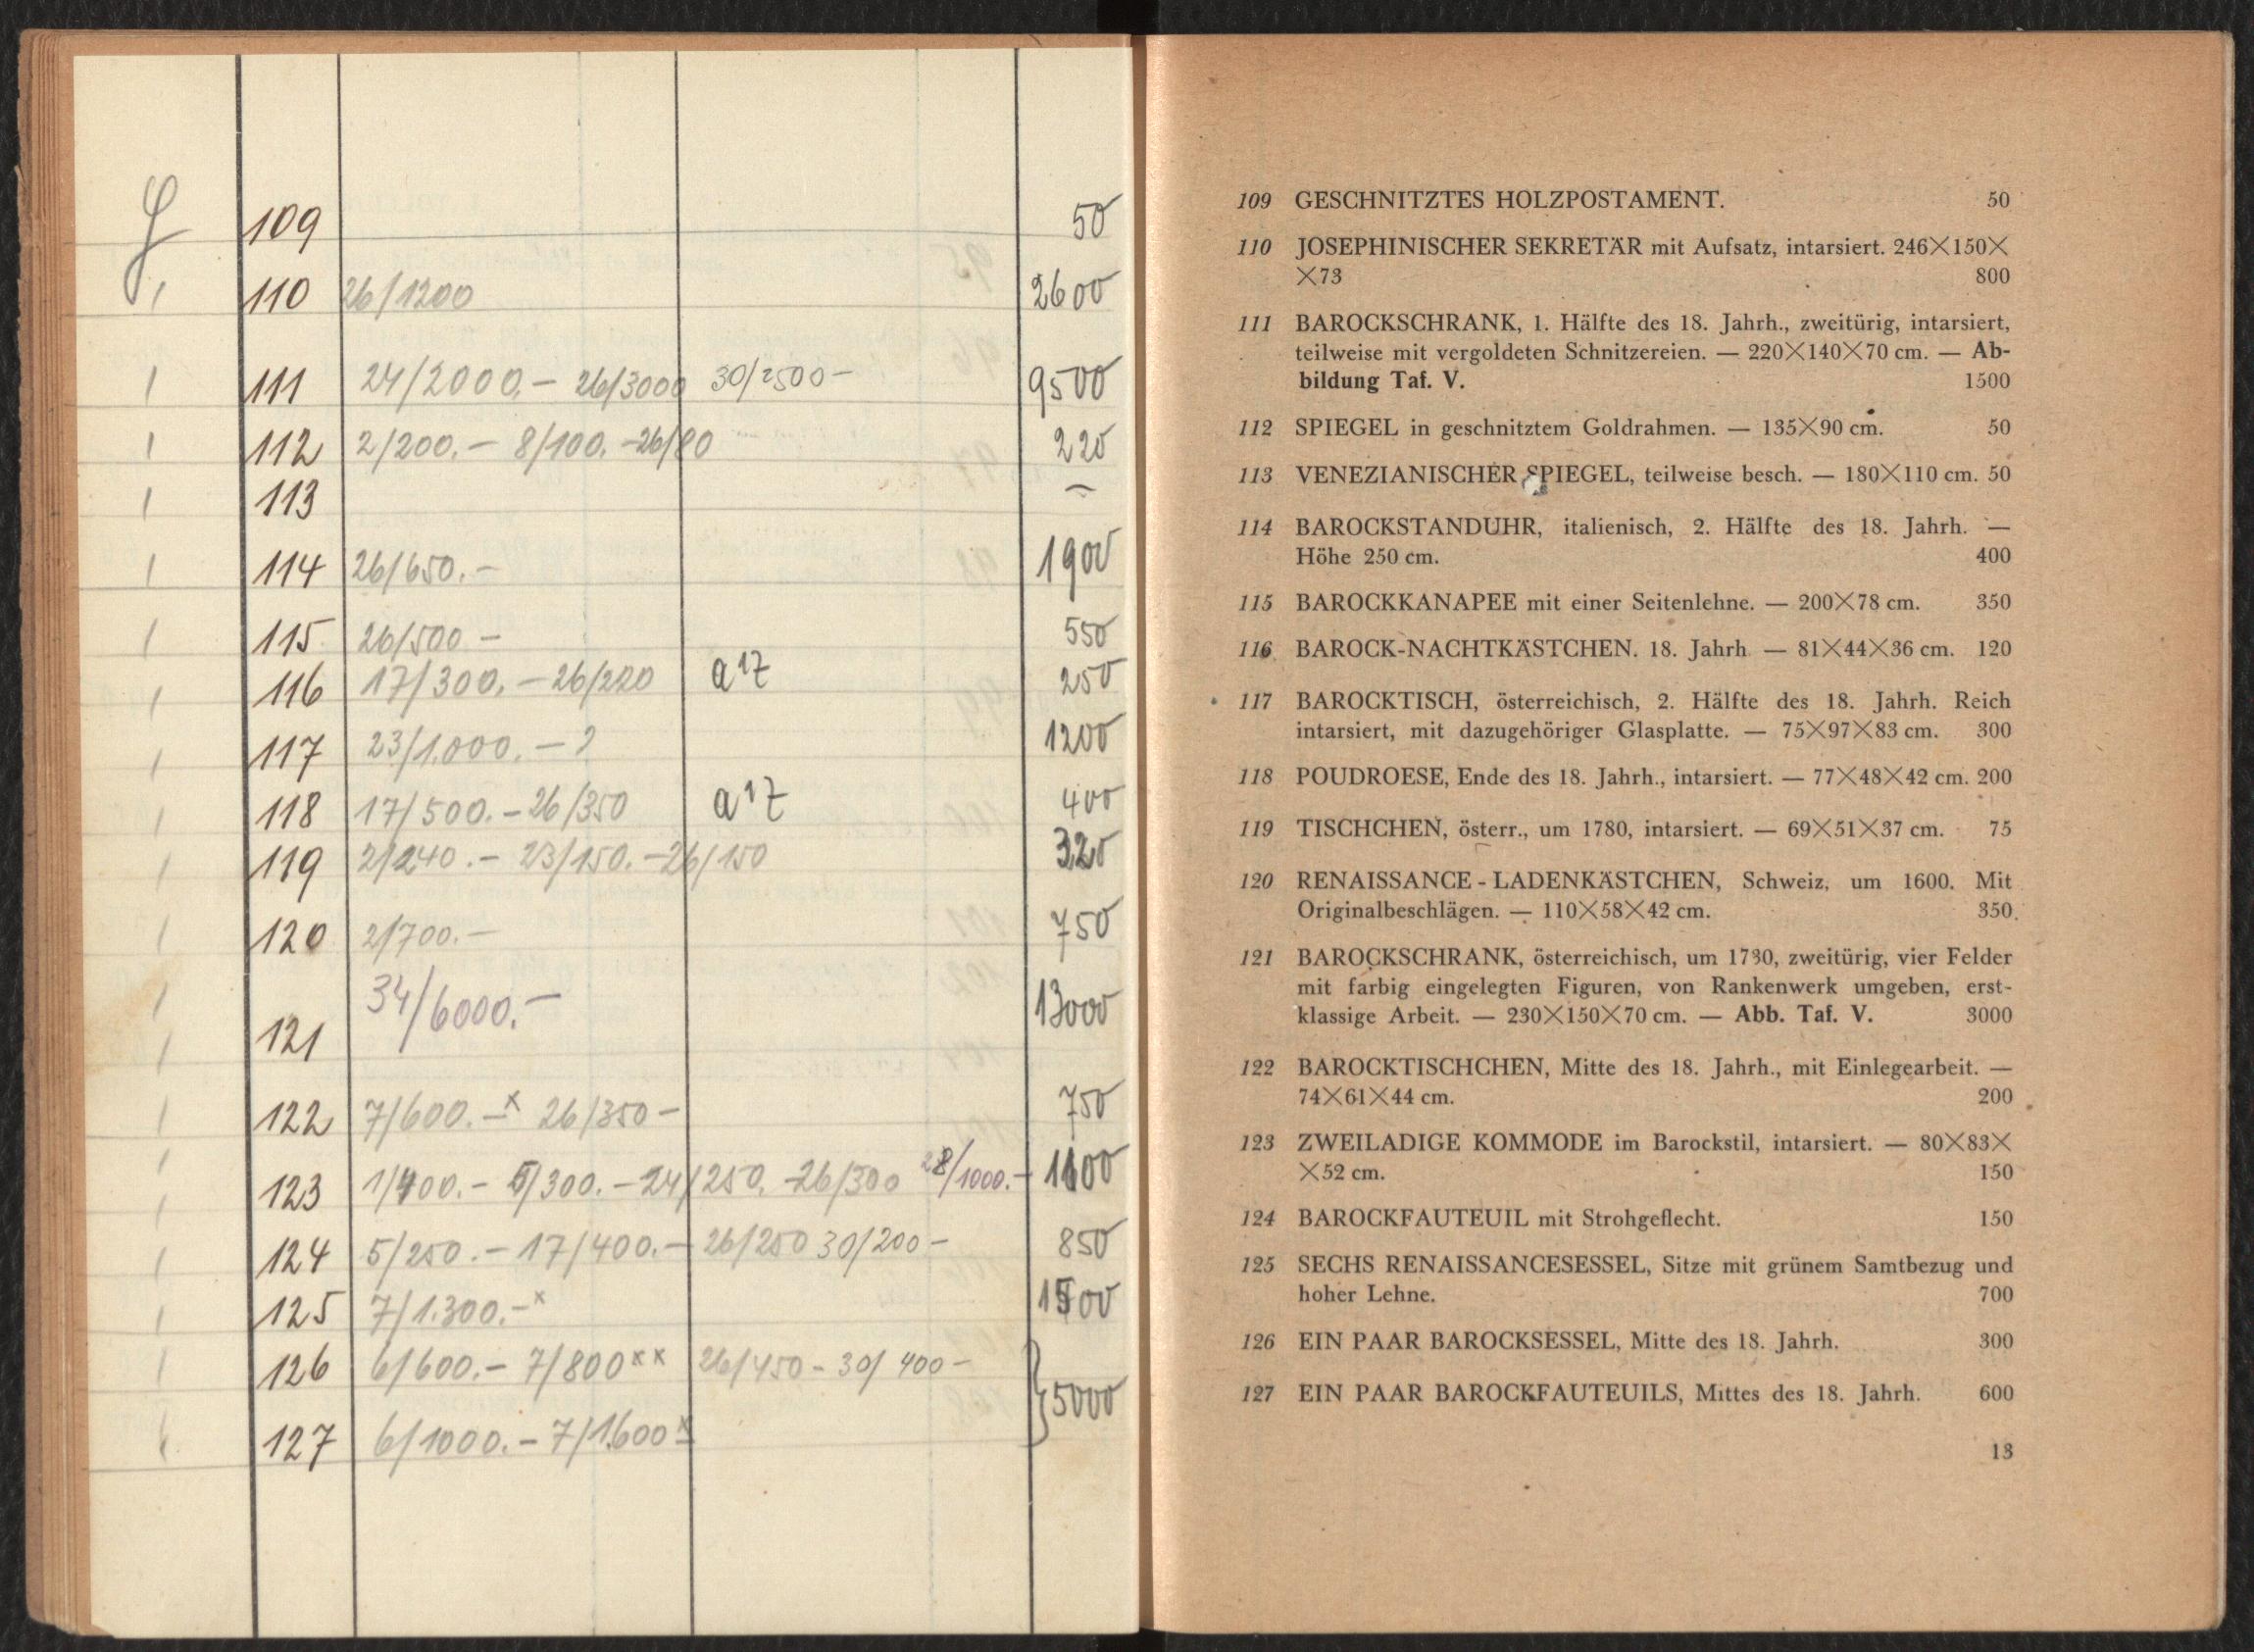 109 50
110 26/1200 2600
111 24/2000.– 26/3000 30/2500– 9500
112 2/200.– 8/100.–26/80 220
113 –
114 26/650.– 1900
115 26/500– 550
116 17/300.–26/220 a 17 250
117 23/1.000.–? 1200
118 17/500.–26/350 a 17 400
119 2/240.– 23/150.–26/150 320
120 2/700.– 750
121 34/6000.– 13000
122 7/600.–x 26/350– 750
123 1/400.– 5/300.–24/250.–26/300 28/1000.– 1100
124 5/250.–17/400.–26/250 30/200– 850
125 7/1.300.–x 1500
126 6/600.– 7/800xx 26/450– 30/400–
127 6/1000.– 7/1.600x } 5000
109 GESCHNITZTES HOLZPOSTAMENT. 50
110 JOSEPHINISCHER SEKRETÄR mit Aufsatz, intarsiert. 246×150×
×73 800
111 BAROCKSCHRANK, 1. Hälfte des 18. Jahrh., zweitürig, intarsiert,
teilweise mit vergoldeten Schnitzereien. — 220×140×70 cm. — Ab-
bildung Taf. V. 1500
112 SPIEGEL in geschnitztem Goldrahmen. — 135×90 cm. 50
113 VENEZIANISCHER SPIEGEL, teilweise besch. — 180×110 cm. 50
114 BAROCKSTANDUHR, italienisch, 2. Hälfte des 18. Jahrh. —
Höhe 250 cm. 400
115 BAROCKKANAPEE mit einer Seitenlehne. — 200×78 cm. 350
116 BAROCK-NACHTKÄSTCHEN. 18. Jahrh — 81×44×36 cm. 120
117 BAROCKTISCH, österreichisch, 2. Hälfte des 18. Jahrh. Reich
intarsiert, mit dazugehöriger Glasplatte. — 75×97×83 cm. 300
118 POUDROESE, Ende des 18. Jahrh., intarsiert. — 77×48×42 cm. 200
119 TISCHCHEN, österr., um 1780, intarsiert. — 69×51×37 cm. 75
120 RENAISSANCE - LADENKÄSTCHEN, Schweiz, um 1600. Mit
Originalbeschlägen. — 110×58×42 cm. 350.
121 BAROCKSCHRANK, österreichisch, um 1730, zweitürig, vier Felder
mit farbig eingelegten Figuren, von Rankenwerk umgeben, erst-
klassige Arbeit. — 230×150×70 cm. — Abb. Taf. V. 3000
122 BAROCKTISCHCHEN, Mitte des 18. Jahrh., mit Einlegearbeit. —
74×61×44 cm. 200
123 ZWEILADIGE KOMMODE im Barockstil, intarsiert. — 80×83×
×52 cm. 150
124 BAROCKFAUTEUIL mit Strohgeflecht. 150
125 SECHS RENAISSANCESESSEL, Sitze mit grünem Samtbezug und
hoher Lehne. 700
126 EIN PAAR BAROCKSESSEL, Mitte des 18. Jahrh. 300
127 EIN PAAR BAROCKFAUTEUILS, Mittes des 18. Jahrh. 600
13